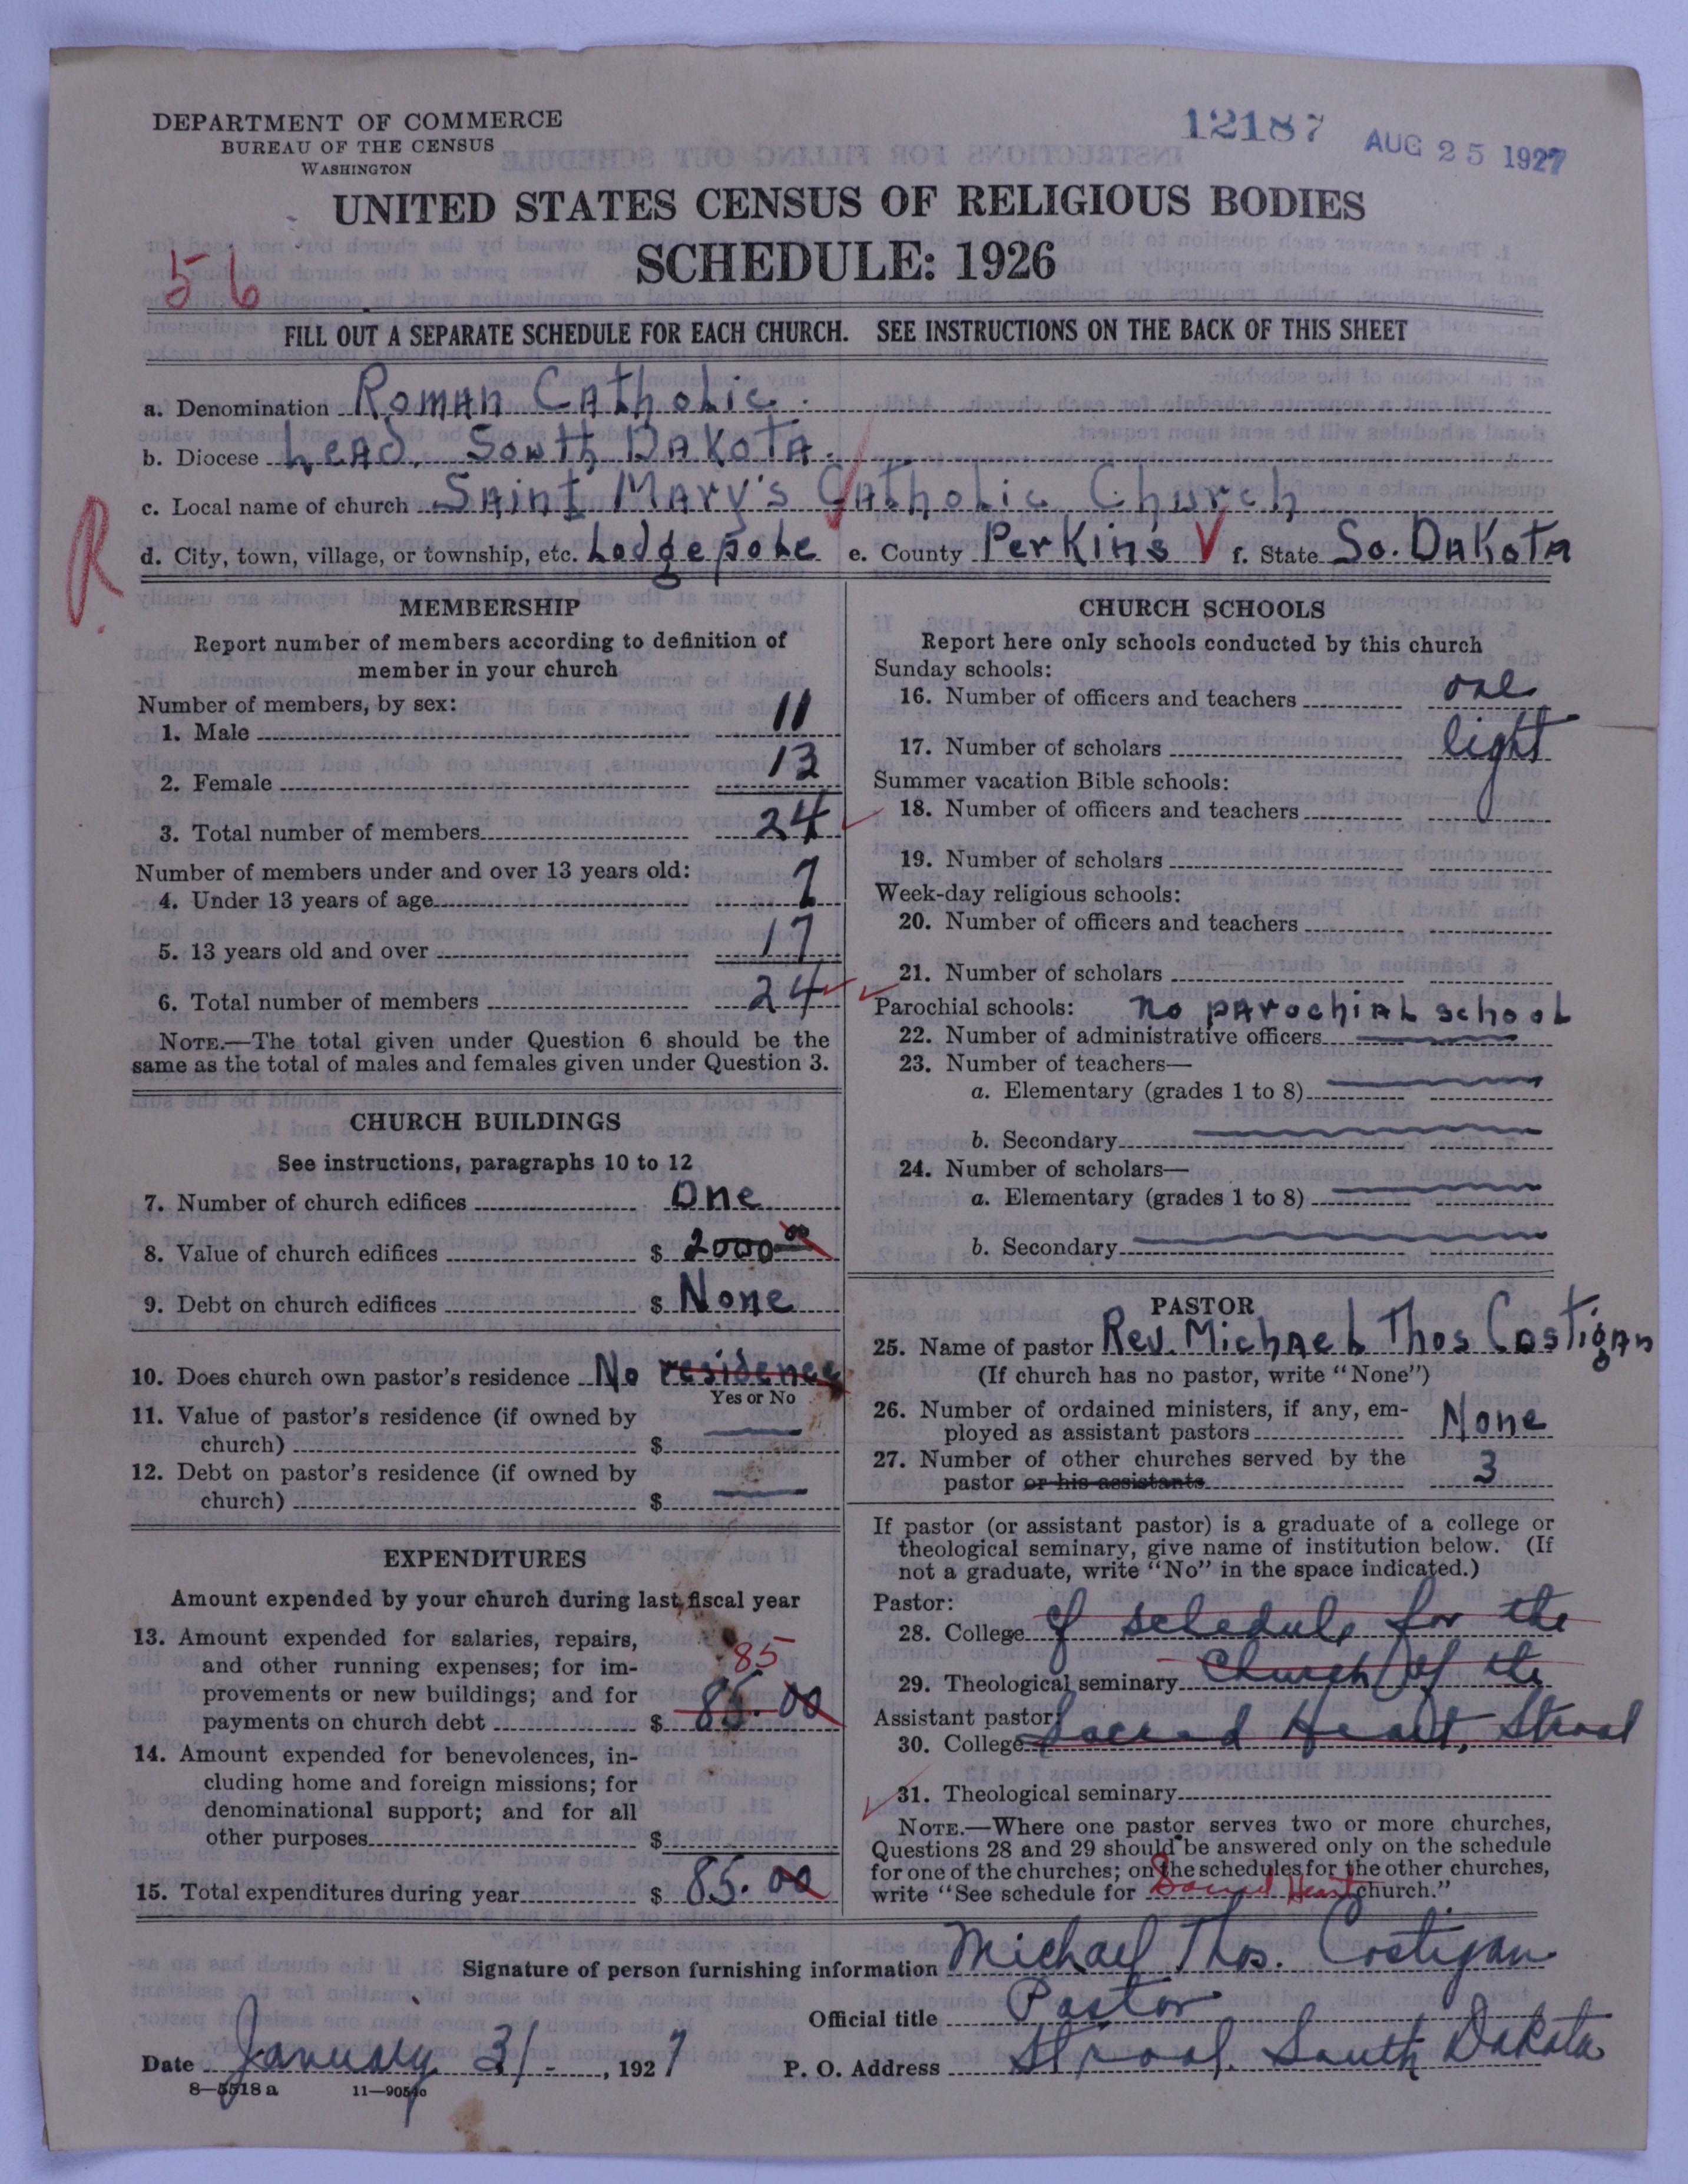 DEPARTMENT OF COMMERCE
BUREAU OF THE CENSUS
WASHINGTON
12187 AUG 25 1927
UNITED STATES CENSUS OF RELIGIOUS BODIES
SCHEDULE: 1926
56
FILL OUT A SEPARATE SCHEDULE FOR EACH CHURCH. SEE INSTRUCTIONS ON THE BACK OF THIS SHEET
a. Denomination Roman Catholic.
b. Diocese Lead, South Dakota.
c. Local name of church Saint Mary's Catholic Church
R.
d. City, town, village, or township, etc. Lodgepole e. County Perkins f. State So. Dakota
MEMBERSHIP
Report number of members according to definition of
member in your church
Number of members, by sex:
1. Male 11
2. Female 13
3. Total number of members 24
Number of members under and over 13 years old:
4. Under 13 years of age 7
5. 13 years old and over 17
6. Total number of members 24
NOTE.—The total given under Question 6 should be the
same as the total of males and females given under Question 3.
CHURCH BUILDINGS
See instructions, paragraphs 10 to 12
7. Number of church edifices One
8. Value of church edifices $ 2000 00
9. Debt on church edifices $ None
10. Does church own pastor's residence No residence
Yes or No
11. Value of pastor's residence (if owned by
church) $
12. Debt on pastor's residence (if owned by
church) $
EXPENDITURES
Amount expended by your church during last fiscal year
13. Amount expended for salaries, repairs,
and other running expenses; for im-
85
provements or new buildings; and for
payments on church debt $ 85.00
14. Amount expended for benevolences, in-
cluding home and foreign missions; for
denominational support; and for all
other purposes $
15. Total expenditures during year $ 85.00
CHURCH SCHOOLS
Report here only schools conducted by this church
Sunday schools:
16. Number of officers and teachers one
17. Number of scholars eight
Summer vacation Bible schools:
18. Number of officers and teachers
19. Number of scholars
Week-day religious schools:
20. Number of officers and teachers
21. Number of scholars
Parochial schools: no parochial school
22. Number of administrative officers
23. Number of teachers—
a. Elementary (grades 1 to 8)
b. Secondary
24. Number of scholars—
a. Elementary (grades 1 to 8)
b. Secondary
PASTOR
25. Name of pastor Rev. Michael Thos Costigan
(If church has no pastor, write "None")
26. Number of ordained ministers, if any, em-
ployed as assistant pastors None
27. Number of other churches served by the
pastor or his assistants 3
If pastor (or assistant pastor) is a graduate of a college or
theological seminary, give name of institution below. (If
not a graduate, write "No" in the space indicated.)
Pastor:
28. College of schedule for the
29. Theological seminary Church of the
Assistant pastor:
30. College Sacred Heart, Strool
31. Theological seminary
NOTE.—Where one pastor serves two or more churches,
Questions 28 and 29 should be answered only on the schedule
for one of the churches; on the schedules for the other churches,
write "See schedule for Sacred Heart church."
Signature of person furnishing information Michael Thos. Costigan
Official title Pastor
Date January 31-, 1927 P. O. Address Strool, South Dakota
8—5518 a 11—9051